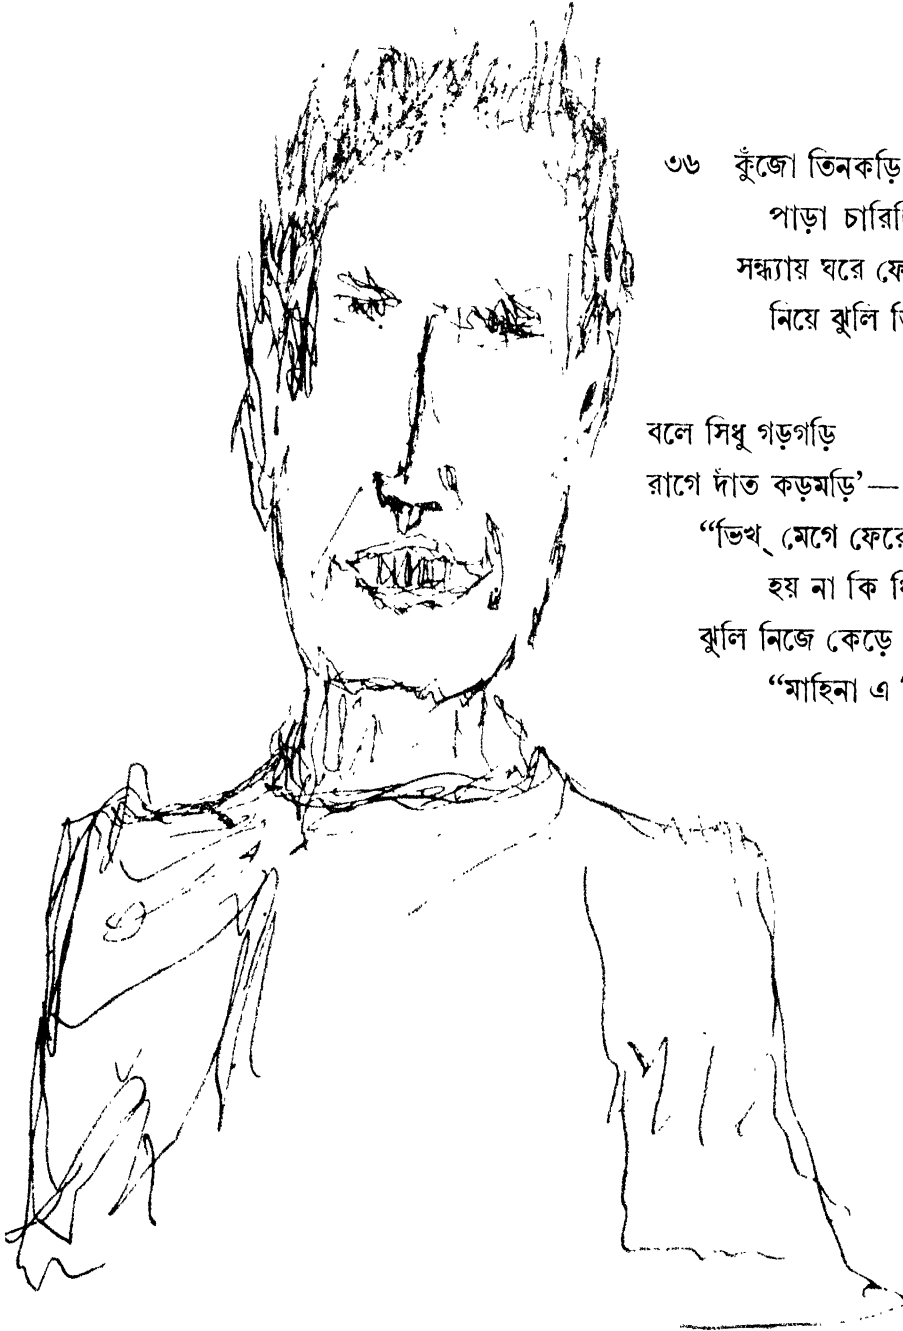 ৩৬ কুঁজো তিনকড়ি
পাড়া
সন্ধ্যায় ঘরে
নিয়ে ঝুলি
বলে সিধু গড়গড়ি
রাগে দাঁত কড়মড়ি’—
“ভিখ্ মেগে
হয় না কি
ঝুলি নিজে কেড়ে
“মাহিনা এ